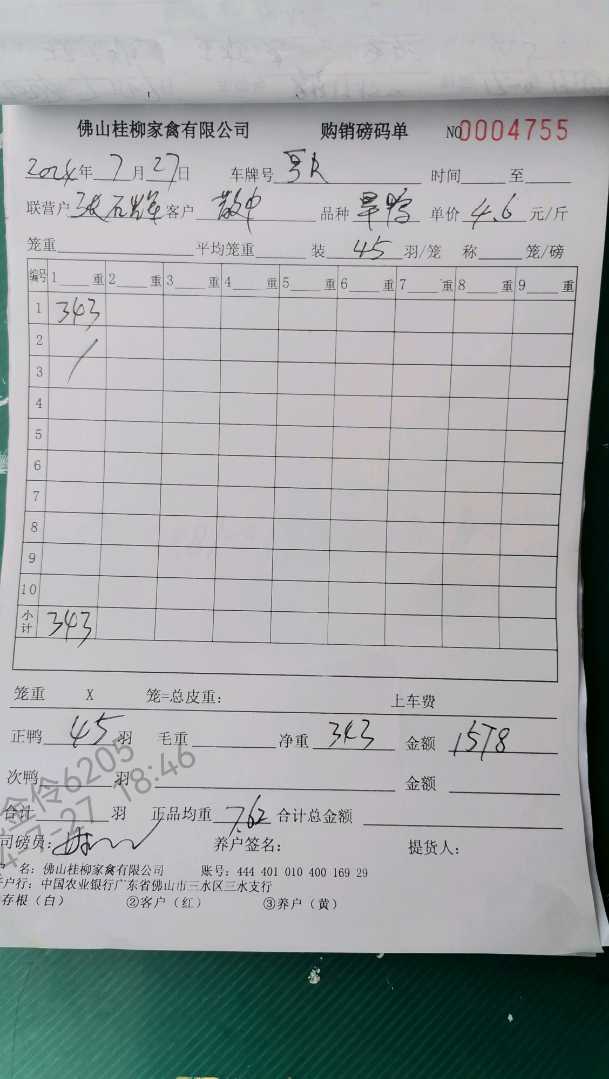 佛山桂柳家禽有限公司 购销磅码单 NO0004755
2024年7月27日 车牌号 时间 至
联营户 客户 散中 品种 单价 4.6 元/斤
笼重 平均笼重 装 45 羽/笼 称 笼/磅
编号 1 重 2 重 3 重 4 重 5 重 6 重 7 重 8 重 9 重
1 343
2
3
4
5
6
7
8
9
10
小计 343
笼重 X 笼=总皮重: 上车费
正鸭 45 羽 毛重 净重 343 金额 1578
次鸭 羽 金额
合计 羽 正品均重 7.62 合计总金额
金伶6205
7-27 18:46
司磅员: 养户签名: 提货人:
名: 佛山桂柳家禽有限公司 账号: 444 401 010 400 169 29
户行: 中国农业银行广东省佛山市三水区三水支行
存根(白) ②客户(红) ③养户(黄)